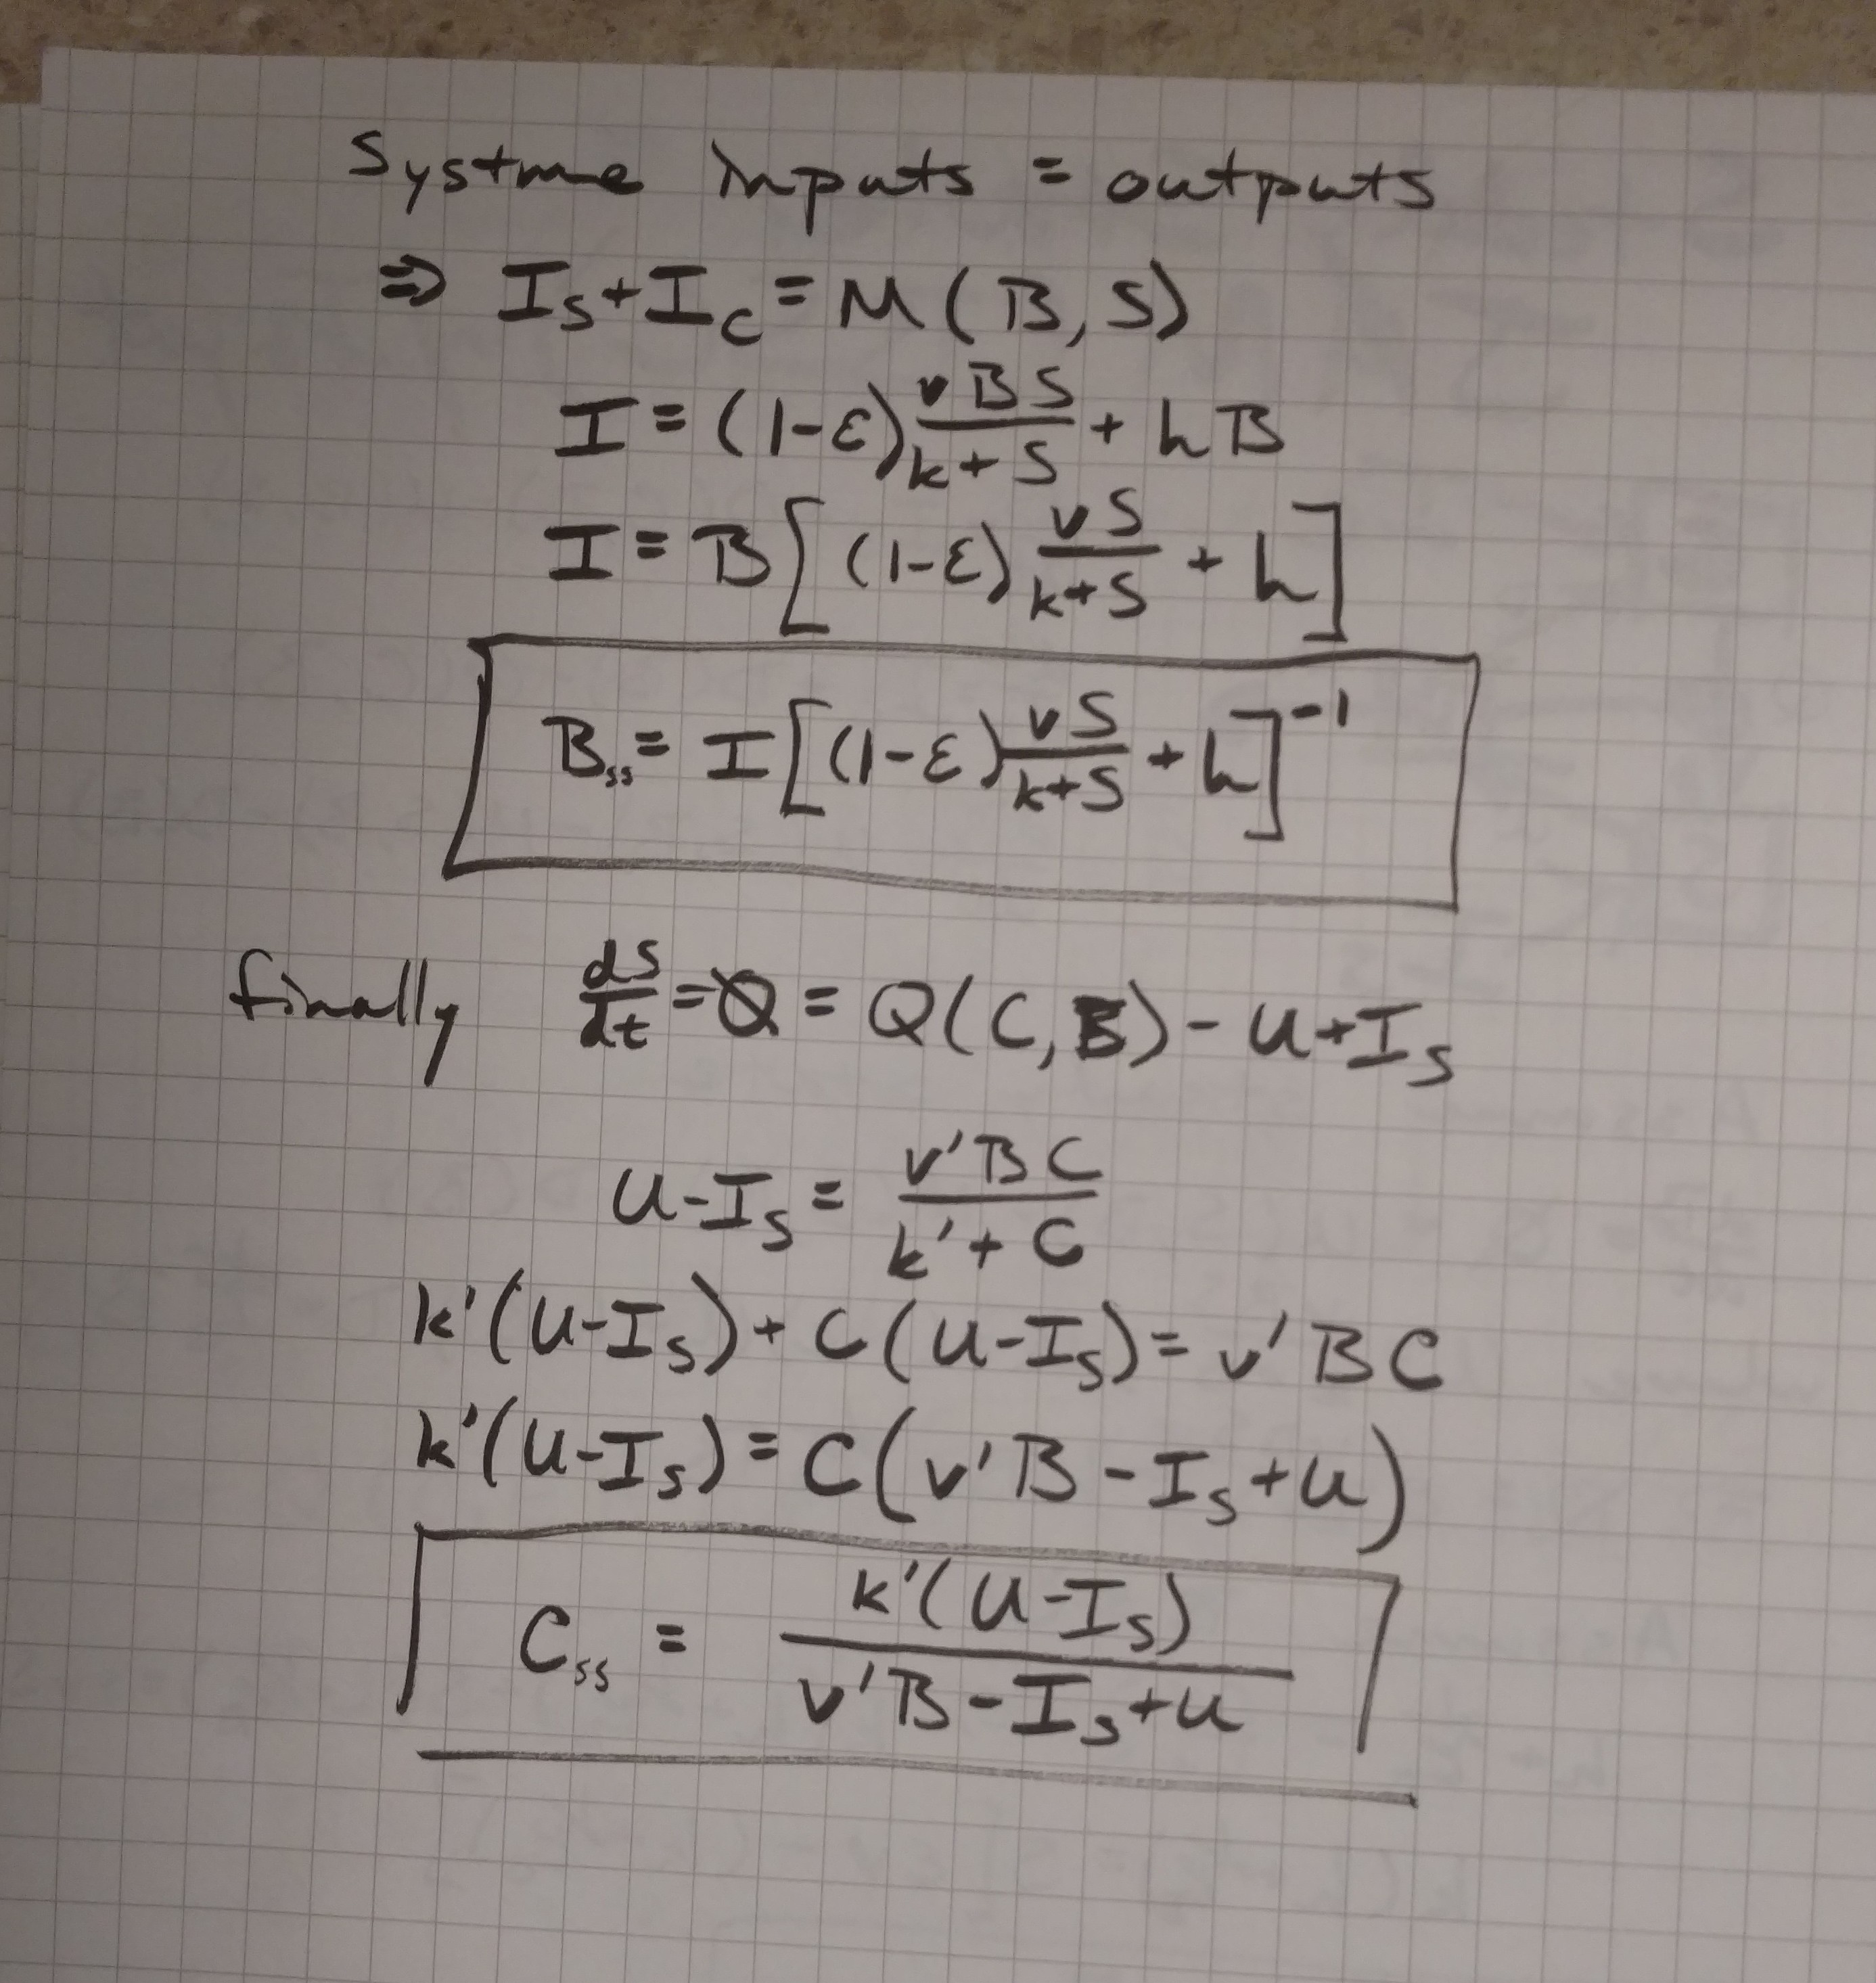 Systme inputs = outputs
⇒ I_S + I_C = M(B, S)
I = (1-ε) vBS/(k+S) + hB
I = B[(1-ε) vS/(k+S) + h]
B_ss = I[(1-ε) vS/(k+S) + h]^-1
finally dS/dt = 0 = Q(C, B) - U + I_S
U - I_S = v'BC/(k'+C)
k'(U-I_S) + C(U-I_S) = v'BC
k'(U-I_S) = C(v'B - I_S + U)
C_ss = k'(U-I_S)/(v'B - I_S + U)